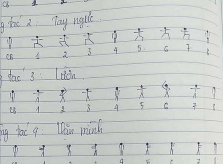 CB
g tác 2 : Tay ngực
CB 1 2 3 4 5 6 7 8
g tác 3 : Lườn
CB 1 2 3 4 5 6 7 8
ng tác 4 : Vặn mình